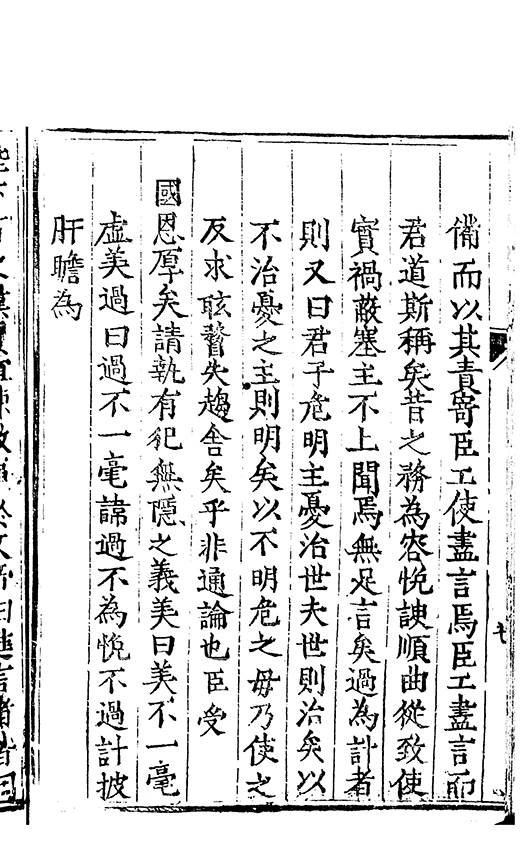 備而以其責寄臣工使盡言焉臣工盡言而
君道斯稱矣昔之務為容悅諛順曲從致使
實禍蔽塞主不上聞焉無足言矣過為計者
則又曰君子危明主憂治世夫世則治矣以
不治憂之主則明矣以不明危之毋乃使之
反求眩瞀失趨舍矣乎非通論也臣受
國恩厚矣請執有犯無隱之義美曰美不一毫
虛美過曰過不一毫諱過不為悅不過計披
肝瞻為
陛下言之漢賈誼陳政事於文帝曰進言者皆曰